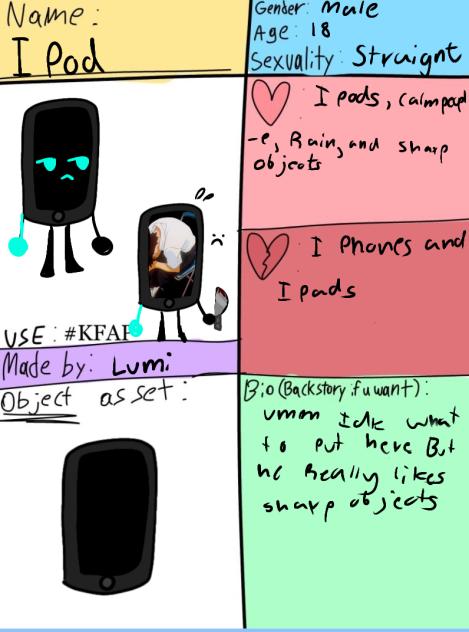 Name:
I Pod
Gender: Male
Age: 18
Sexuality: Straignt
I pods, calmpeopl
-e, Rain, and sharp
objects
I Phones and
I pads
USE: #KFAP
Made by: Lumi
Object asset:
Bio (Backstory if u want):
umm Idk what
to put here But
he Really likes
sharp objects